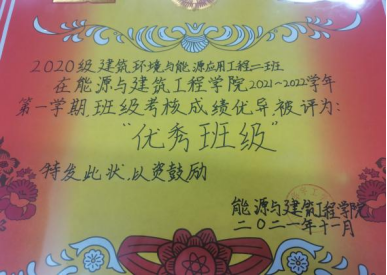 2020级建筑环境与能源应用工程二班
在能源与建筑工程学院2021~2022学年
第一学期,班级考核成绩优异,被评为:
“优秀班级”
特发此状,以资鼓励
能源与建筑工程学院
二〇二一年十一月